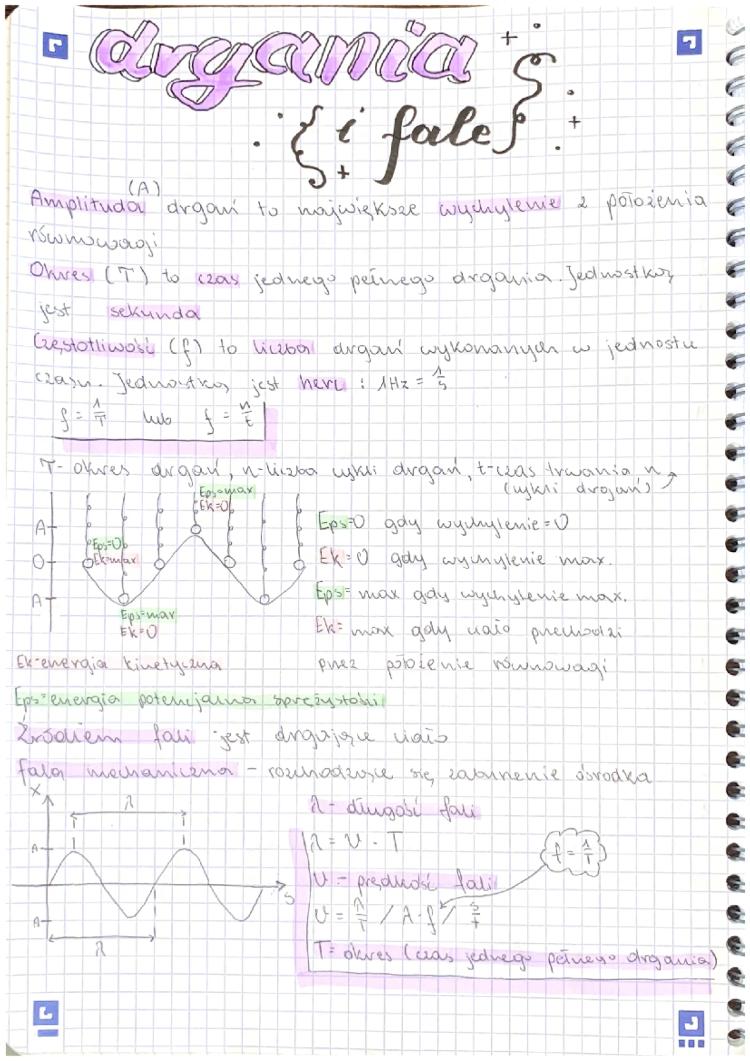 drgania
{i fale}
(A)
Amplituda drgań to największe wychylenie z położenia
równowagi
Okres (T) to czas jednego pełnego drgania. Jednostką
jest sekunda
Częstotliwość (f) to liczba drgań wykonanych w jednostce
czasu. Jednostką jest herc : 1Hz = 1/s
f = 1/T lub f = n/t
T- okres drgań, n-liczba cykli drgań, t-czas trwania n
(cykli drgań)
Eps=max
Ek=0
A
Eps=0
O
Ek=max
A
Eps=max
Ek=0
Eps=0 gdy wychylenie=0
Ek=0 gdy wychylenie max.
Eps= max gdy wychylenie max.
Ek= max gdy ciało przechodzi
przez położenie równowagi
Ek-energia kinetyczna
Eps=energia potencjalna sprężystości
Źródłem fali jest drgające ciało
fala mechaniczna - rozchodzące się zaburzenie ośrodka
X
λ
A
A
S
λ
λ- długość fali
λ = v · T
f = 1/T
v- prędkość fali
v = λ/T / λ·f / s/t
T= okres (czas jednego pełnego drgania)